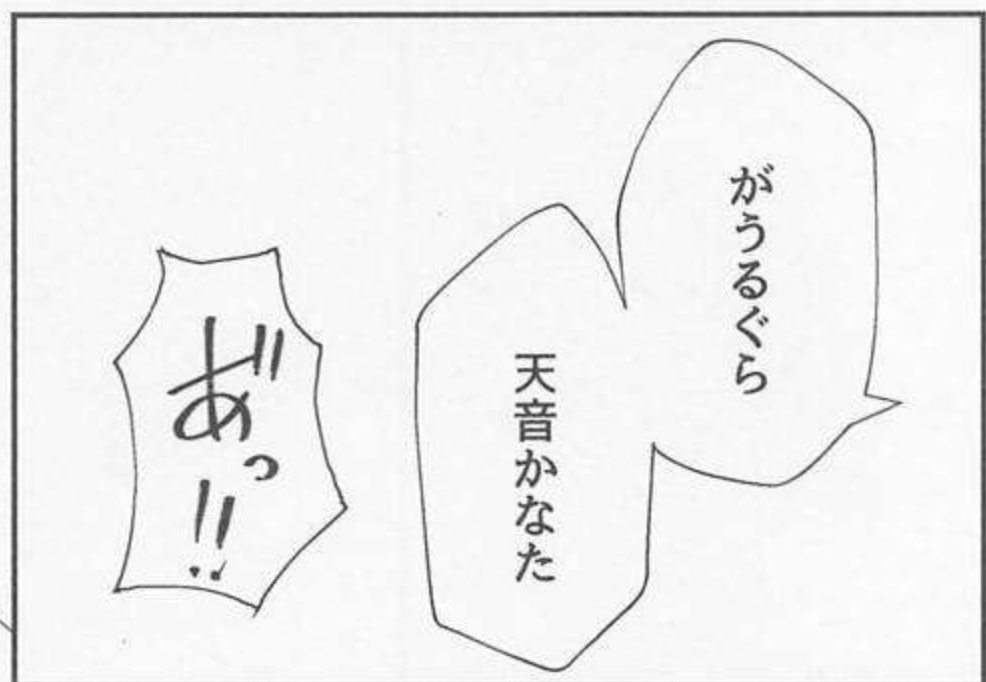 がうるぐら
天音かなた
あ゛っ!!